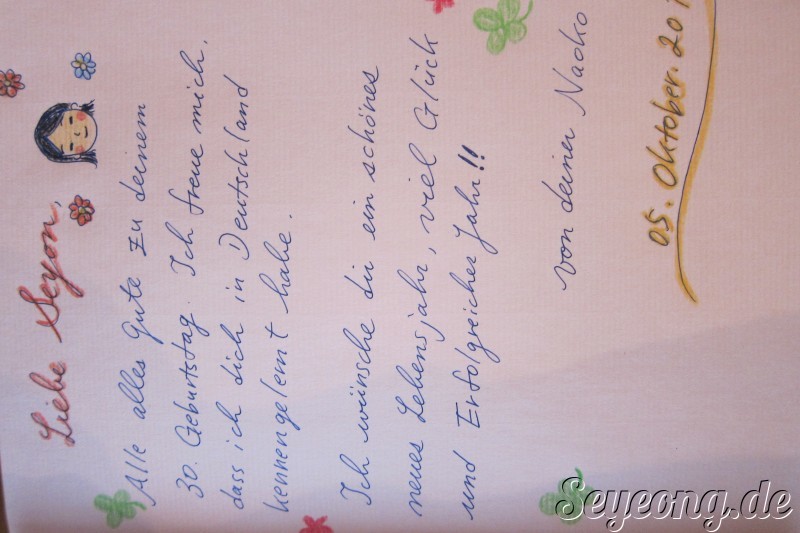 Liebe Seyon,
Alle alles Gute zu deinem
30. Geburtstag. Ich freue mich,
dass ich dich in Deutschland
kennengelernt habe.
Ich wünsche dir ein schönes
neues Lebensjahr, viel Glück
und Erfolgreicher Jahr!!
von deiner Naoko
05. Oktober. 201
Seyeong.de